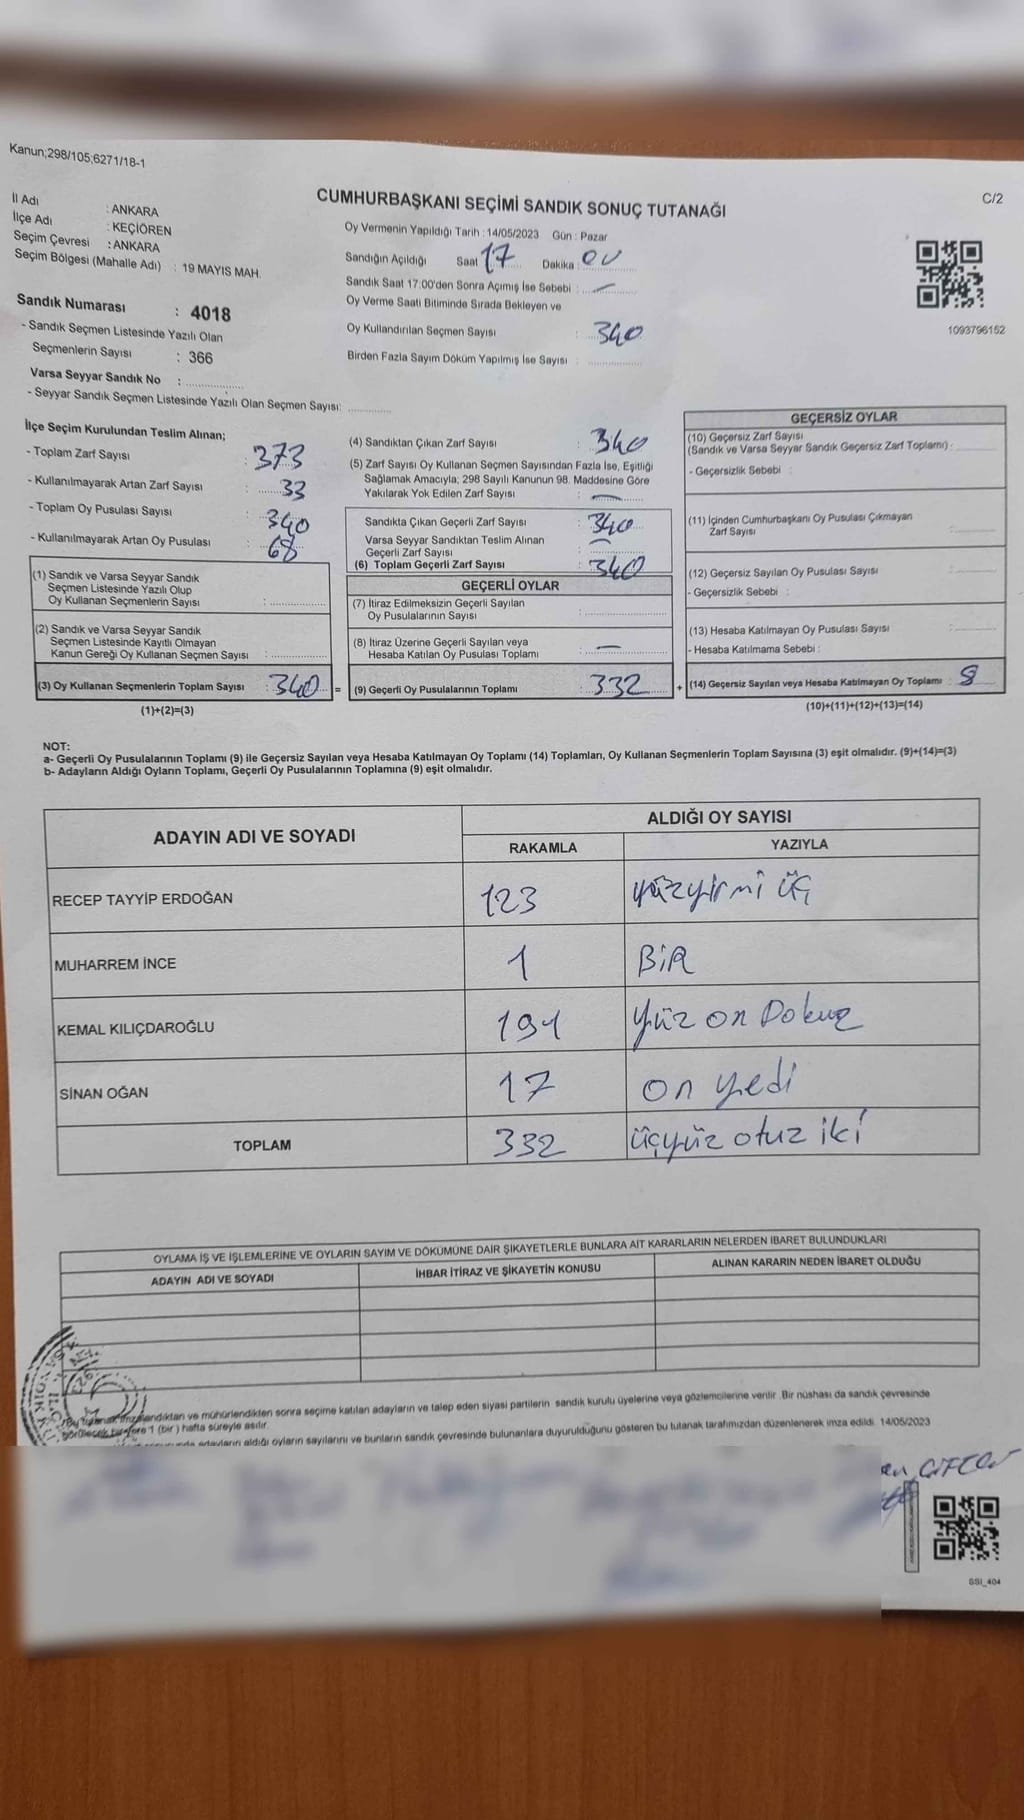 Kanun;298/105;6271/18-1
C/2
CUMHURBAŞKANI SEÇİMİ SANDIK SONUÇ TUTANAĞI
İl Adı : ANKARA
İlçe Adı : KEÇİÖREN
Seçim Çevresi : ANKARA
Seçim Bölgesi (Mahalle Adı) : 19 MAYIS MAH.
Sandık Numarası : 4018
- Sandık Seçmen Listesinde Yazılı Olan
Seçmenlerin Sayısı : 366
Varsa Seyyar Sandık No :
- Seyyar Sandık Seçmen Listesinde Yazılı Olan Seçmen Sayısı:
Oy Vermenin Yapıldığı Tarih : 14/05/2023 Gün : Pazar
Sandığın Açıldığı Saat 17 Dakika :
Sandık Saat 17:00'den Sonra Açımış İse Sebebi : —
Oy Verme Saati Bitiminde Sırada Bekleyen ve
Oy Kullandırılan Seçmen Sayısı : 340
Birden Fazla Sayım Döküm Yapılmış İse Sayısı :
1093796152
İlçe Seçim Kurulundan Teslim Alınan;
- Toplam Zarf Sayısı : 373
- Kullanılmayarak Artan Zarf Sayısı : 33
- Toplam Oy Pusulası Sayısı : 340
- Kullanılmayarak Artan Oy Pusulası : 68
(1) Sandık ve Varsa Seyyar Sandık
Seçmen Listesinde Yazılı Olup
Oy Kullanan Seçmenlerin Sayısı :
(2) Sandık ve Varsa Seyyar Sandık
Seçmen Listesinde Kayıtlı Olmayan
Kanun Gereği Oy Kullanan Seçmen Sayısı :
(3) Oy Kullanan Seçmenlerin Toplam Sayısı : 340 =
(1)+(2)=(3)
(4) Sandıktan Çıkan Zarf Sayısı : 340
(5) Zarf Sayısı Oy Kullanan Seçmen Sayısından Fazla İse, Eşitliği
Sağlamak Amacıyla; 298 Sayılı Kanunun 98. Maddesine Göre
Yakılarak Yok Edilen Zarf Sayısı : —
Sandıkta Çıkan Geçerli Zarf Sayısı : 340
Varsa Seyyar Sandıktan Teslim Alınan
Geçerli Zarf Sayısı : —
(6) Toplam Geçerli Zarf Sayısı : 340
GEÇERLİ OYLAR
(7) İtiraz Edilmeksizin Geçerli Sayılan
Oy Pusulalarının Sayısı :
(8) İtiraz Üzerine Geçerli Sayılan veya
Hesaba Katılan Oy Pusulası Toplamı : —
(9) Geçerli Oy Pusulalarının Toplamı : 332 +
GEÇERSİZ OYLAR
(10) Geçersiz Zarf Sayısı
(Sandık ve Varsa Seyyar Sandık Geçersiz Zarf Toplamı) :
- Geçersizlik Sebebi :
(11) İçinden Cumhurbaşkanı Oy Pusulası Çıkmayan
Zarf Sayısı :
(12) Geçersiz Sayılan Oy Pusulası Sayısı :
- Geçersizlik Sebebi :
(13) Hesaba Katılmayan Oy Pusulası Sayısı :
- Hesaba Katılmama Sebebi :
(14) Geçersiz Sayılan veya Hesaba Katılmayan Oy Toplamı : 8
(10)+(11)+(12)+(13)=(14)
NOT:
a- Geçerli Oy Pusulalarının Toplamı (9) ile Geçersiz Sayılan veya Hesaba Katılmayan Oy Toplamı (14) Toplamları, Oy Kullanan Seçmenlerin Toplam Sayısına (3) eşit olmalıdır. (9)+(14)=(3)
b- Adayların Aldığı Oyların Toplamı, Geçerli Oy Pusulalarının Toplamına (9) eşit olmalıdır.
ADAYIN ADI VE SOYADI ALDIĞI OY SAYISI
RAKAMLA YAZIYLA
RECEP TAYYİP ERDOĞAN 123 yüzyirmi üç
MUHARREM İNCE 1 BİR
KEMAL KILIÇDAROĞLU 191 yüz on Dokuz
SİNAN OĞAN 17 on yedi
TOPLAM 332 üçyüz otuz iki
OYLAMA İŞ VE İŞLEMLERİNE VE OYLARIN SAYIM VE DÖKÜMÜNE DAİR ŞİKAYETLERLE BUNLARA AİT KARARLARIN NELERDEN İBARET BULUNDUKLARI
ADAYIN ADI VE SOYADI İHBAR İTİRAZ VE ŞİKAYETİN KONUSU ALINAN KARARIN NEDEN İBARET OLDUĞU
ve mühürlendikten sonra seçime katılan adayların ve talep eden siyasi partilerin sandık kurulu üyelerine veya gözlemcilerine verilir. Bir nüshası da sandık çevresinde
1 (bir) hafta süreyle asılır.
adayların aldığı oyların sayılarını ve bunların sandık çevresinde bulunanlara duyurulduğunu gösteren bu tutanak tarafımızdan düzenlenerek imza edildi. 14/05/2023
SSI_404